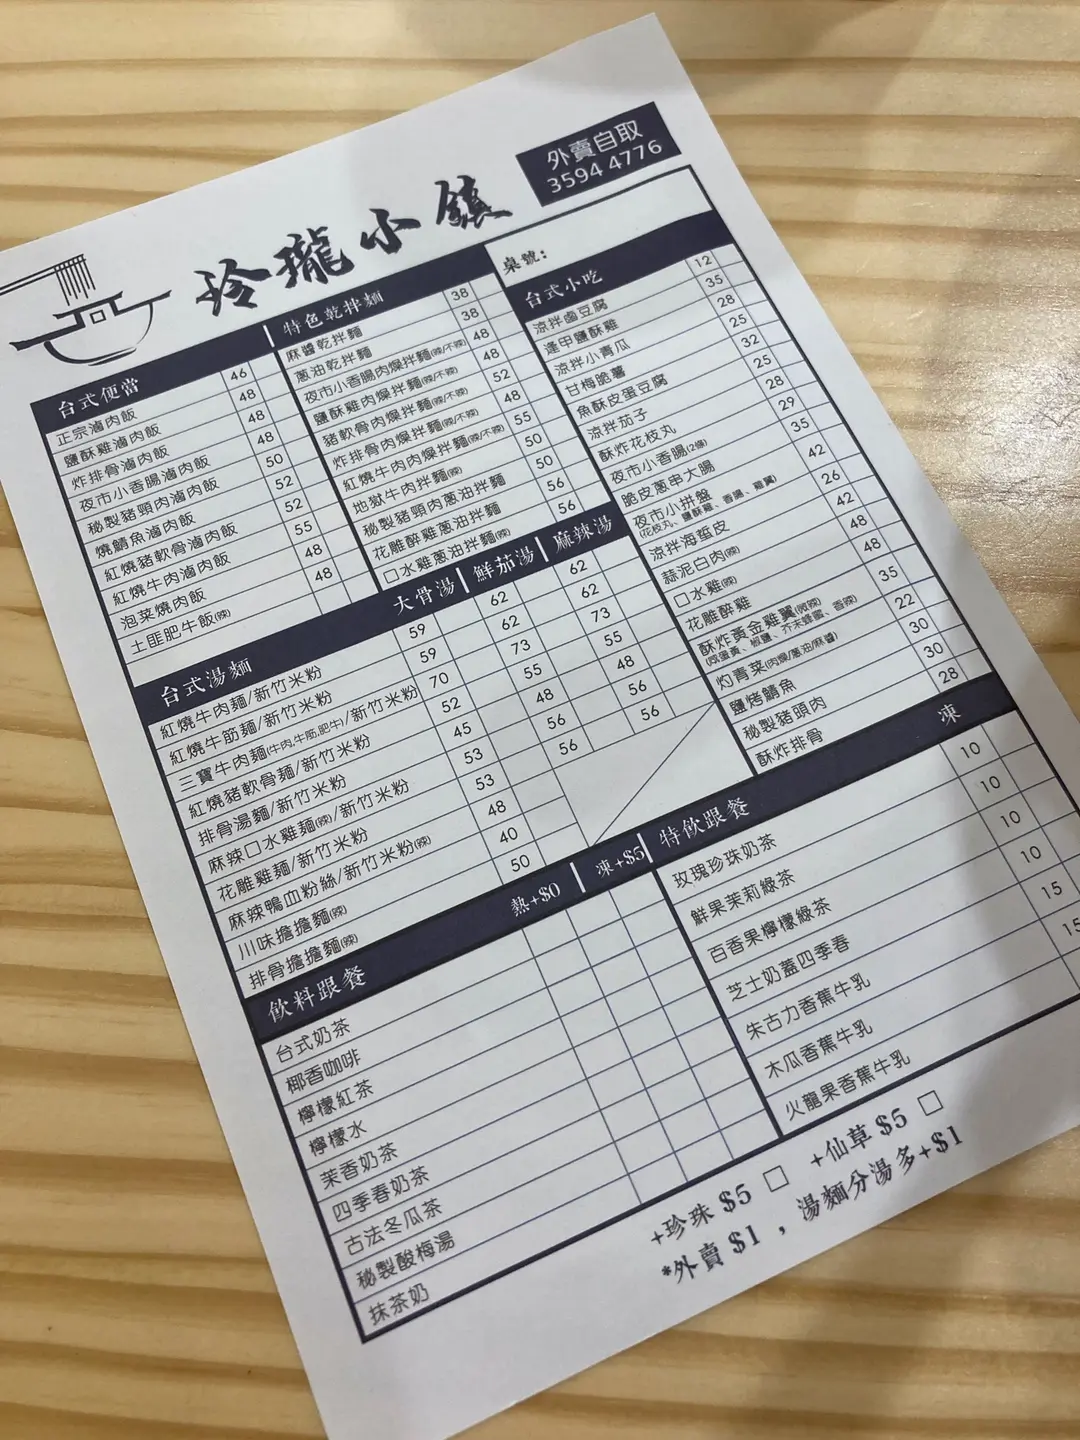 外賣自取
3594 4776
玲瓏小鎮
桌號：
台式便當
正宗滷肉飯 46
鹽酥雞滷肉飯 48
炸排骨滷肉飯 48
夜市小香腸滷肉飯 48
秘製豬頸肉滷肉飯 50
燒鯖魚滷肉飯 52
紅燒豬軟骨滷肉飯 52
紅燒牛肉滷肉飯 55
泡菜燒肉飯 48
土匪肥牛飯(辣) 48
特色乾拌麵
麻醬乾拌麵 38
蔥油乾拌麵 38
夜市小香腸肉燥拌麵(辣/不辣) 48
鹽酥雞肉燥拌麵(辣/不辣) 48
豬軟骨肉燥拌麵(辣/不辣) 52
炸排骨肉燥拌麵(辣/不辣) 48
紅燒牛肉肉燥拌麵(辣/不辣) 55
地獄牛肉拌麵(辣) 50
秘製豬頸肉蔥油拌麵 50
花雕醉雞蔥油拌麵 56
口水雞蔥油拌麵(辣) 56
台式小吃
涼拌滷豆腐 12
逢甲鹽酥雞 35
涼拌小青瓜 28
甘梅脆薯 25
魚酥皮蛋豆腐 32
涼拌茄子 25
酥炸花枝丸 28
夜市小香腸(2條) 29
脆皮蔥串大腸 35
夜市小拼盤 42
(花枝丸、鹽酥雞、香腸、雞翼)
涼拌海蜇皮 26
蒜泥白肉(辣) 42
口水雞(辣) 48
花雕醉雞 48
酥炸黃金雞翼(微辣) 35
(咸蛋黃、椒鹽、芥末蜂蜜、香辣)
灼青菜(肉燥/蔥油/麻醬) 22
鹽烤鯖魚 30
秘製豬頭肉 30
酥炸排骨 28
台式湯麵 大骨湯 鮮茄湯 麻辣湯
紅燒牛肉麵/新竹米粉 59 62 62
紅燒牛筋麵/新竹米粉 59 62 62
三寶牛肉麵(牛肉,牛筋,肥牛)/新竹米粉 70 73 73
紅燒豬軟骨麵/新竹米粉 52 55 55
排骨湯麵/新竹米粉 45 48 48
麻辣口水雞麵(辣)/新竹米粉 53 56 56
花雕雞麵/新竹米粉 53 56 56
麻辣鴨血粉絲/新竹米粉(辣) 48
川味擔擔麵(辣) 40
排骨擔擔麵(辣) 50
飲料跟餐 熱+$0 凍+$5
台式奶茶
椰香咖啡
檸檬紅茶
檸檬水
茉香奶茶
四季春奶茶
古法冬瓜茶
秘製酸梅湯
抹茶奶
特飲跟餐 凍
玫瑰珍珠奶茶 10
鮮果茉莉綠茶 10
百香果檸檬綠茶 10
芝士奶蓋四季春 10
朱古力香蕉牛乳 15
木瓜香蕉牛乳 15
火龍果香蕉牛乳
+珍珠 $5 □ +仙草 $5 □
*外賣 $1 , 湯麵分湯多+$1